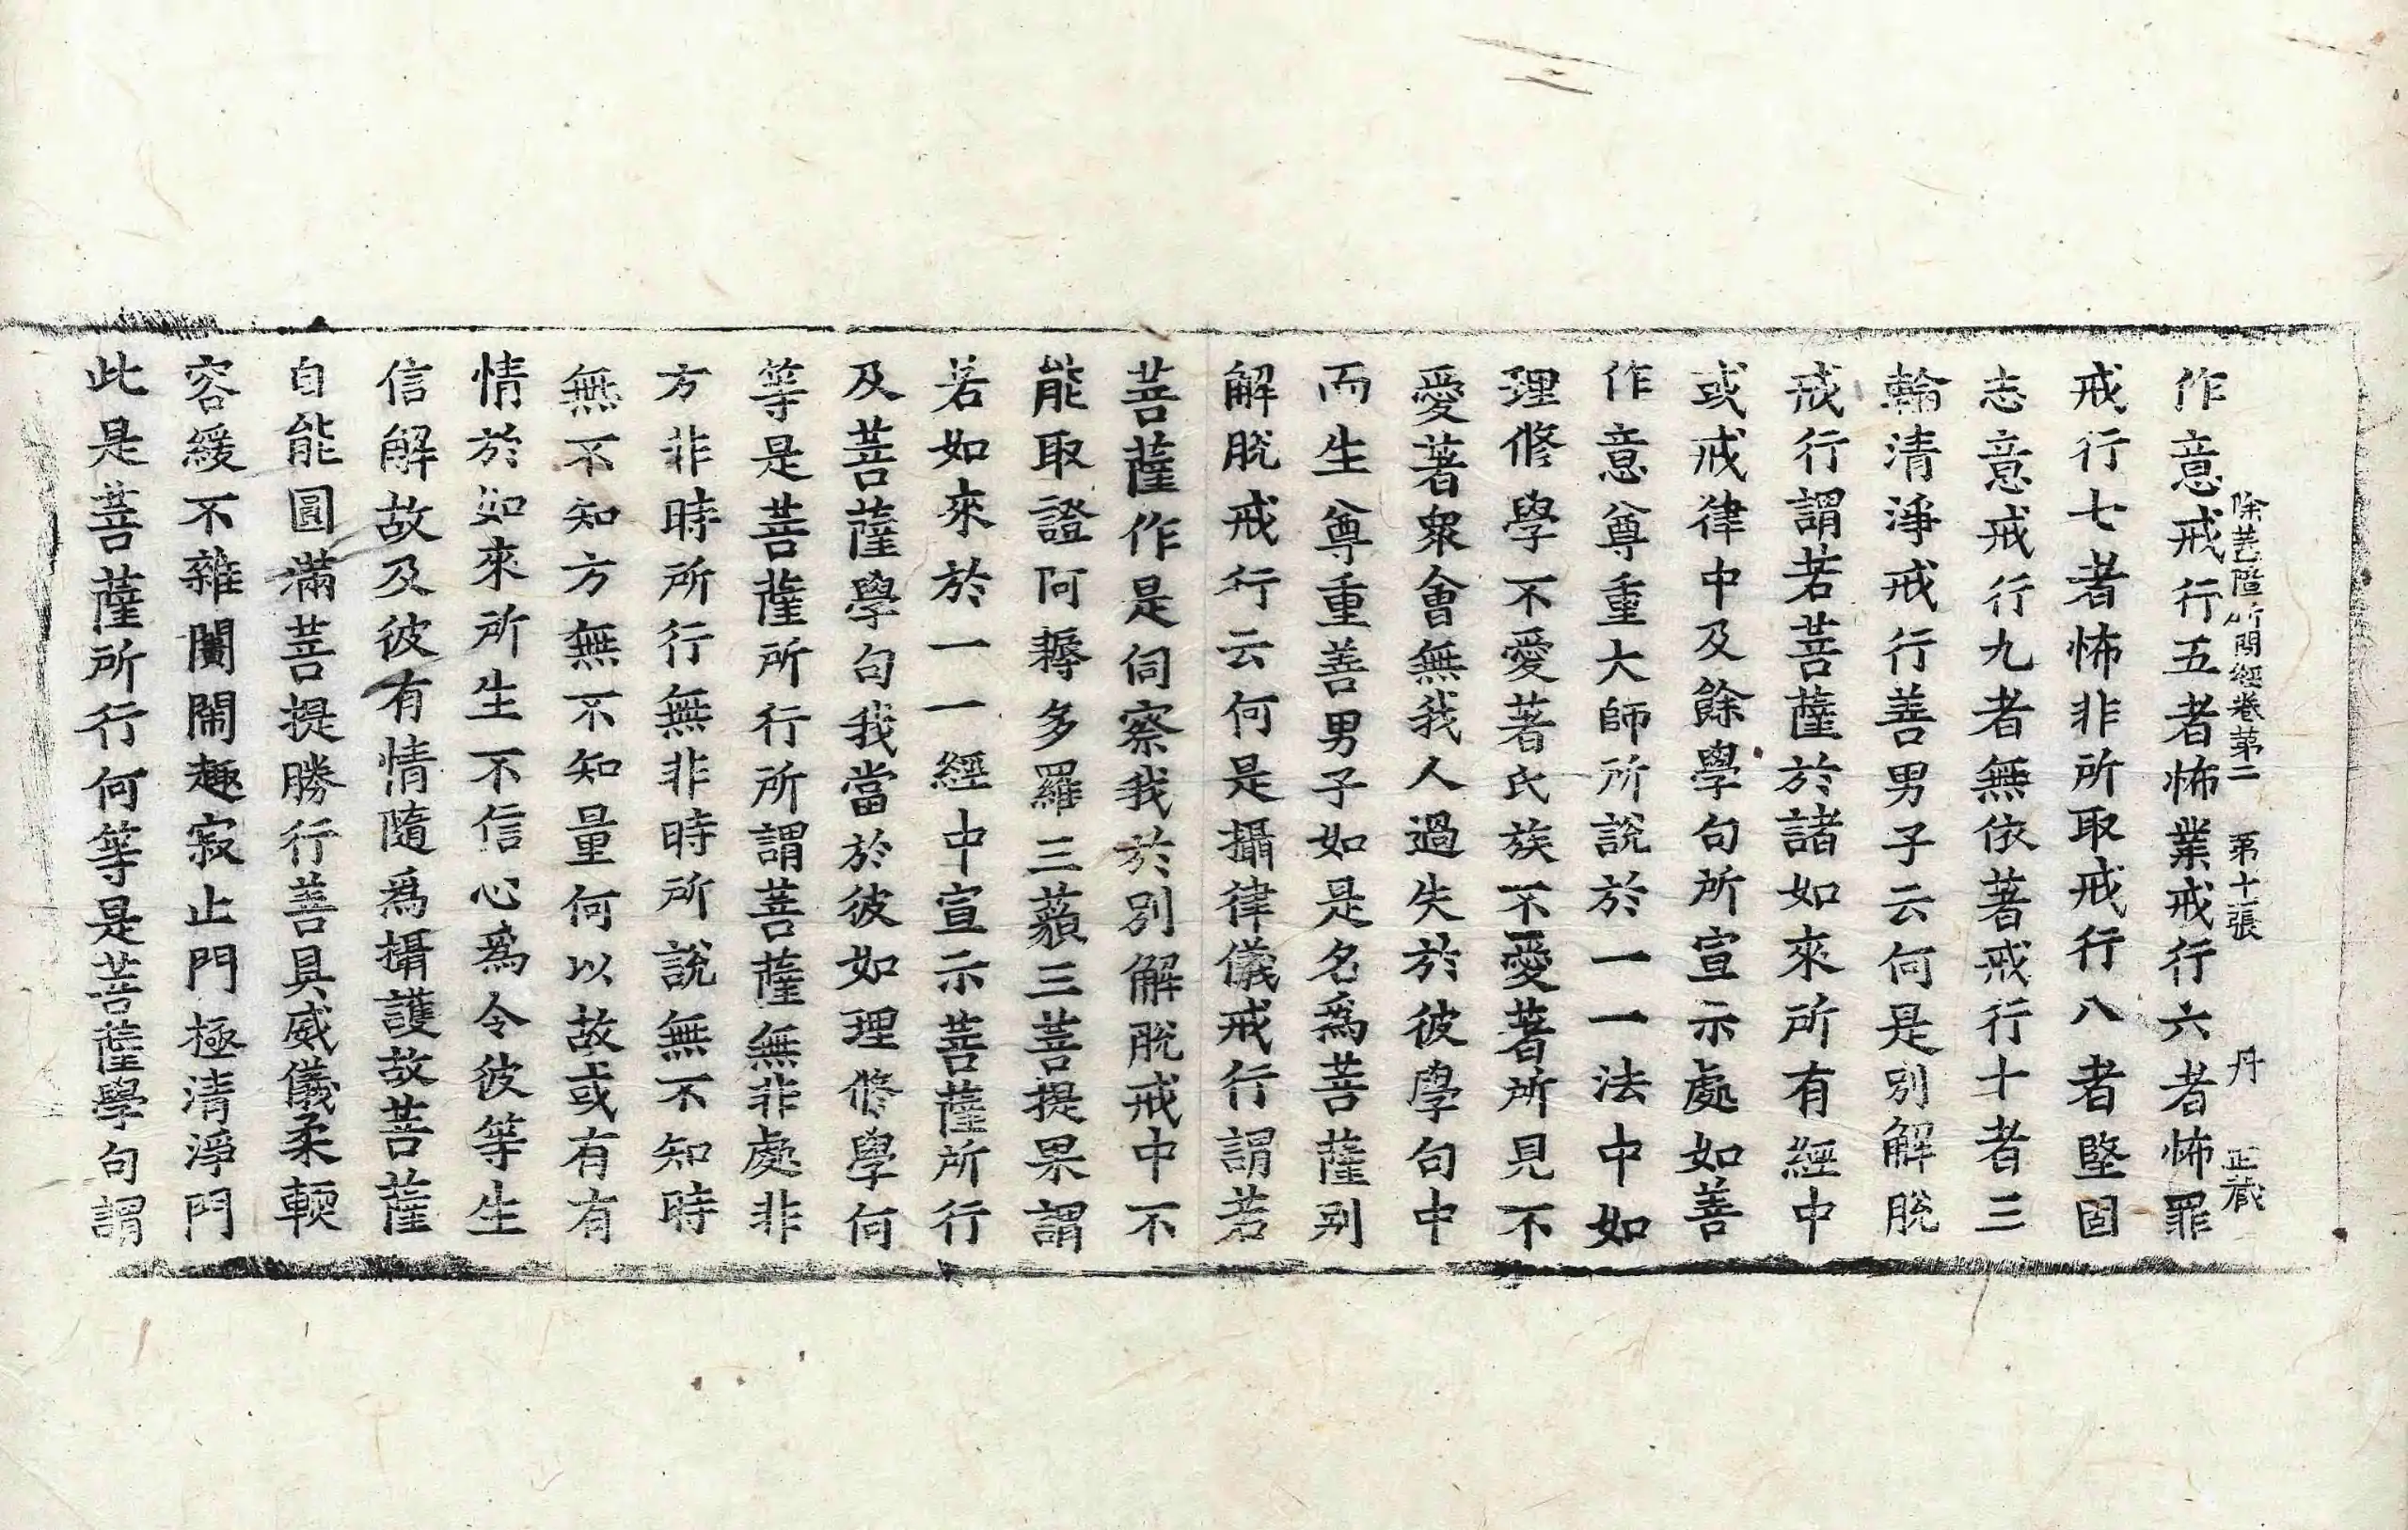 除盖障所問經卷第二 第十二張 丹 正藏
作意戒行五者怖業戒行六者怖罪
戒行七者怖非所取戒行八者堅固
志意戒行九者無依著戒行十者三
輪清淨戒行善男子云何是別解脫
戒行謂若菩薩於諸如來所有經中
或戒律中及餘學句所宣示處如善
作意尊重大師所說於一一法中如
理修學不愛著氏族不愛著所見不
愛著衆會無我人過失於彼學句中
而生尊重善男子如是名爲菩薩別
解脫戒行云何是攝律儀戒行謂若
菩薩作是伺察我於別解脫戒中不
能取證阿耨多羅三藐三菩提果謂
若如來於一一經中宣示菩薩所行
及菩薩學句我當於彼如理修學何
等是菩薩所行所謂菩薩無非處非
方非時所行無非時所說無不知時
無不知方無不知量何以故或有有
情於如來所生不信心爲令彼等生
信解故及彼有情隨爲攝護故菩薩
自能圓滿菩提勝行善具威儀柔輭
容緩不雜闤閙趣寂止門極清淨門
此是菩薩所行何等是菩薩學句謂